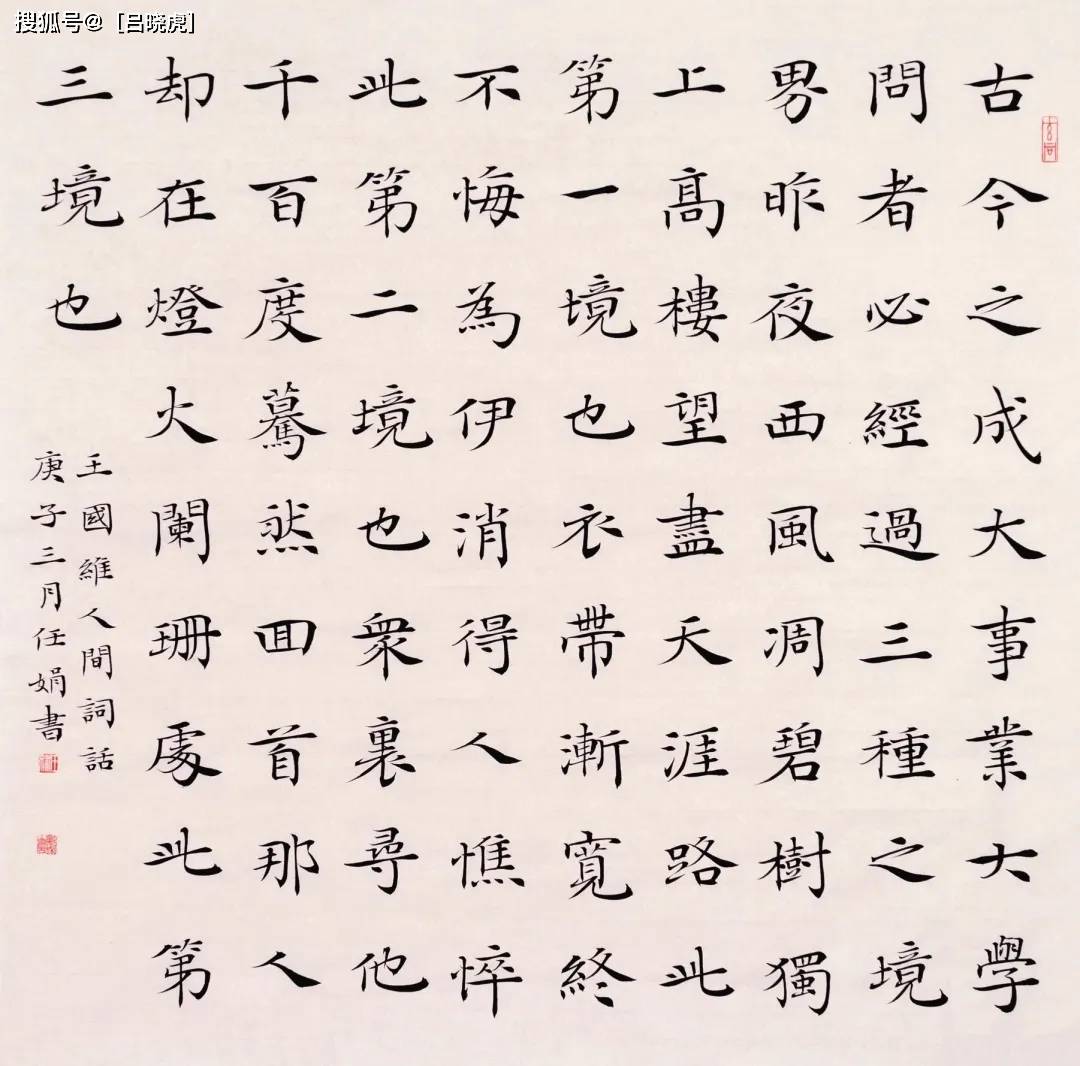 搜狐号@［吕晓虎］
古今之成大事業大學
問者必經過三種之境
界昨夜西風凋碧樹獨
上髙樓望盡天涯路此
第一境也衣帶漸寬終
不悔為伊消得人憔悴
此第二境也衆裏尋他
千百度驀然囬首那人
却在燈火闌珊處此第
三境也
王國維人間詞話
庚子三月任娟書